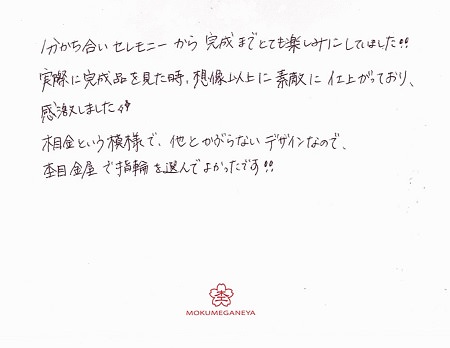 分かち合いセレモニーから完成までとても楽しみにしていました!!
実際に完成品を見た時、想像以上に素敵に仕上がっており、
感激しました
木目金という模様で、他とかぶらないデザインなので、
杢目金屋で指輪を選んでよかったです!!
杢
MOKUMEGANEYA